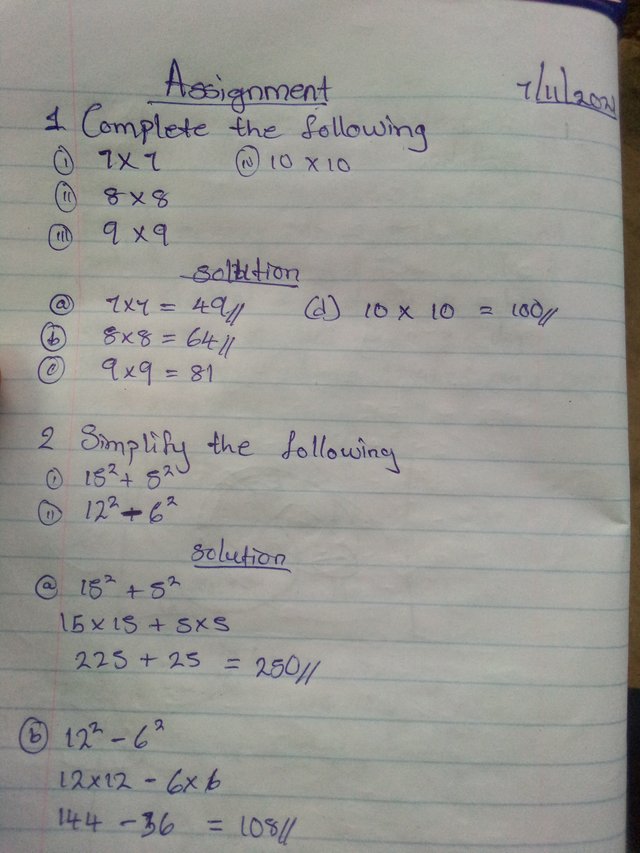 Assignment 7/11/2021
1 Complete the following
(i) 7×7 (iv) 10 × 10
(ii) 8 × 8
(iii) 9 × 9
solution
(a) 7×7 = 49// (d) 10 × 10 = 100//
(b) 8×8 = 64//
(c) 9×9 = 81
2 Simplify the following
(i) 15² + 5²
(ii) 12² - 6²
solution
(a) 15² + 5²
15×15 + 5×5
225 + 25 = 250//
(b) 12² - 6²
12×12 - 6×6
144 - 36 = 108//